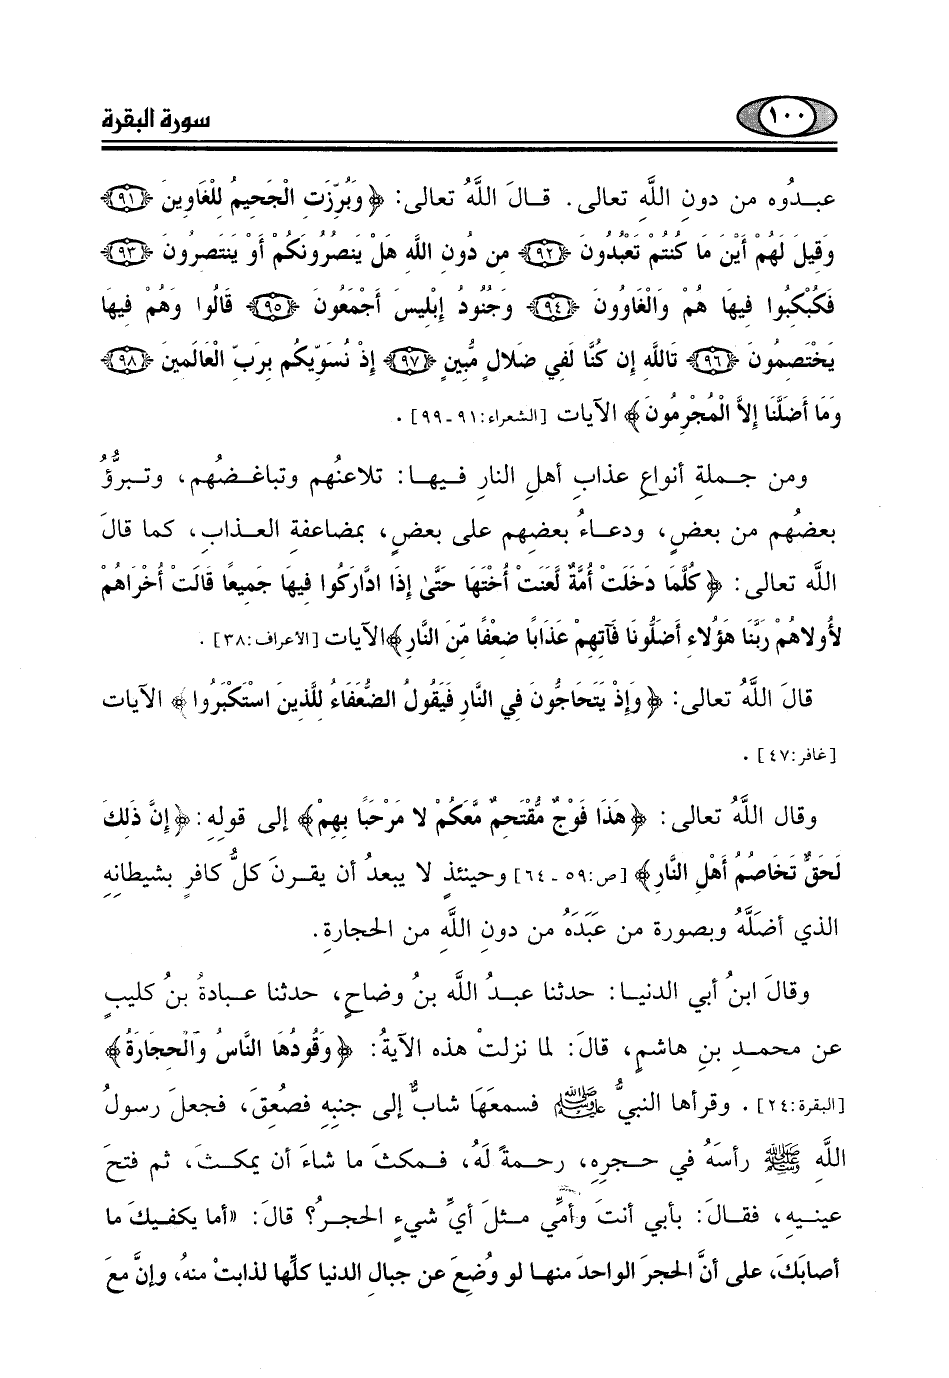 ١٠٠ سورة البقرة
عبدُوه من دونِ اللَّهِ تعالى. قالَ اللَّهُ تعالى: ﴿وَبُرِّزَتِ الْجَحِيمُ لِلْغَاوِينَ ﴿٩١﴾
وَقِيلَ لَهُمْ أَيْنَ مَا كُنتُمْ تَعْبُدُونَ ﴿٩٢﴾ مِن دُونِ اللَّهِ هَلْ يَنصُرُونَكُمْ أَوْ يَنتَصِرُونَ ﴿٩٣﴾
فَكُبْكِبُوا فِيهَا هُمْ وَالْغَاوُونَ ﴿٩٤﴾ وَجُنُودُ إِبْلِيسَ أَجْمَعُونَ ﴿٩٥﴾ قَالُوا وَهُمْ فِيهَا
يَخْتَصِمُونَ ﴿٩٦﴾ تَاللَّهِ إِن كُنَّا لَفِي ضَلالٍ مُّبِينٍ ﴿٩٧﴾ إِذْ نُسَوِّيكُم بِرَبِّ الْعَالَمِينَ ﴿٩٨﴾
وَمَا أَضَلَّنَا إِلاَّ الْمُجْرِمُونَ﴾ الآيات [الشعراء:٩١-٩٩].
ومن جملةِ أنواعِ عذابِ أهلِ النارِ فيها: تلاعنُهم وتباغضُهم، وتبرُّؤُ
بعضُهم من بعضٍ، ودعاءُ بعضِهم على بعضٍ، بمضاعفةِ العذابِ، كما قالَ
اللَّه تعالى: ﴿كُلَّمَا دَخَلَتْ أُمَّةٌ لَّعَنَتْ أُخْتَهَا حَتَّىٰ إِذَا ادَّارَكُوا فِيهَا جَمِيعًا قَالَتْ أُخْرَاهُمْ
لأُولاهُمْ رَبَّنَا هَؤُلاءِ أَضَلُّونَا فَآتِهِمْ عَذَابًا ضِعْفًا مِّنَ النَّارِ﴾الآيات [الأعراف:٣٨].
قالَ اللَّهُ تعالى: ﴿وَإِذْ يَتَحَاجُّونَ فِي النَّارِ فَيَقُولُ الضُّعَفَاءُ لِلَّذِينَ اسْتَكْبَرُوا﴾ الآيات
[غافر:٤٧].
وقال اللَّهُ تعالى: ﴿هَذَا فَوْجٌ مُّقْتَحِمٌ مَّعَكُمْ لا مَرْحَبًا بِهِمْ﴾ إلى قولِهِ: ﴿إِنَّ ذَلِكَ
لَحَقٌّ تَخَاصُمُ أَهْلِ النَّارِ﴾ [ص:٥٩-٦٤] وحينئذٍ لا يبعدُ أن يقرنَ كلُّ كافرٍ بشيطانِهِ
الذي أضَلَّهُ وبصورة من عَبَدَهُ من دونِ اللَّهِ من الحجارةِ.
وقالَ ابنُ أبي الدنيا: حدثنا عبدُ اللَّه بنُ وضاحٍ، حدثنا عبادةُ بنُ كليبٍ
عن محمدِ بنِ هاشمٍ، قالَ: لما نزلتْ هذه الآيةُ: ﴿وَقُودُهَا النَّاسُ وَالْحِجَارَةُ﴾
[البقرة:٢٤]. وقرأها النبيُّ ﷺ فسمعَهَا شابٌّ إلى جنبِهِ فصُعِقَ، فجعلَ رسولُ
اللَّهِ ﷺ رأسَهُ في حجرِهِ، رحمةً لَهُ، فمكثَ ما شاءَ أن يمكثَ، ثم فتحَ
عينيهِ، فقالَ: بأبي أنتَ وأمِّي مثلَ أيِّ شيءٍ الحجرُ؟ قالَ: «أما يكفيكَ ما
أصابكَ، على أنَّ الحجرَ الواحدَ منها لو وُضعَ عن جبالِ الدنيا كلِّها لذابتْ منهُ، وإنَّ معَ